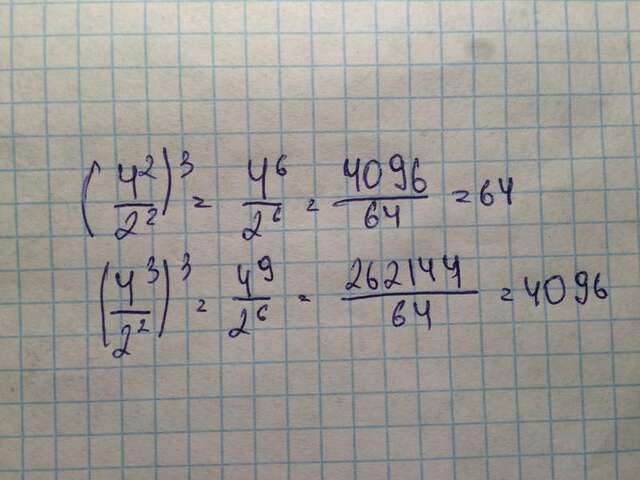 (4²/2²)³ = 4⁶/2⁶ = 4096/64 = 64
(4³/2²)³ = 4⁹/2⁶ = 262144/64 = 4096